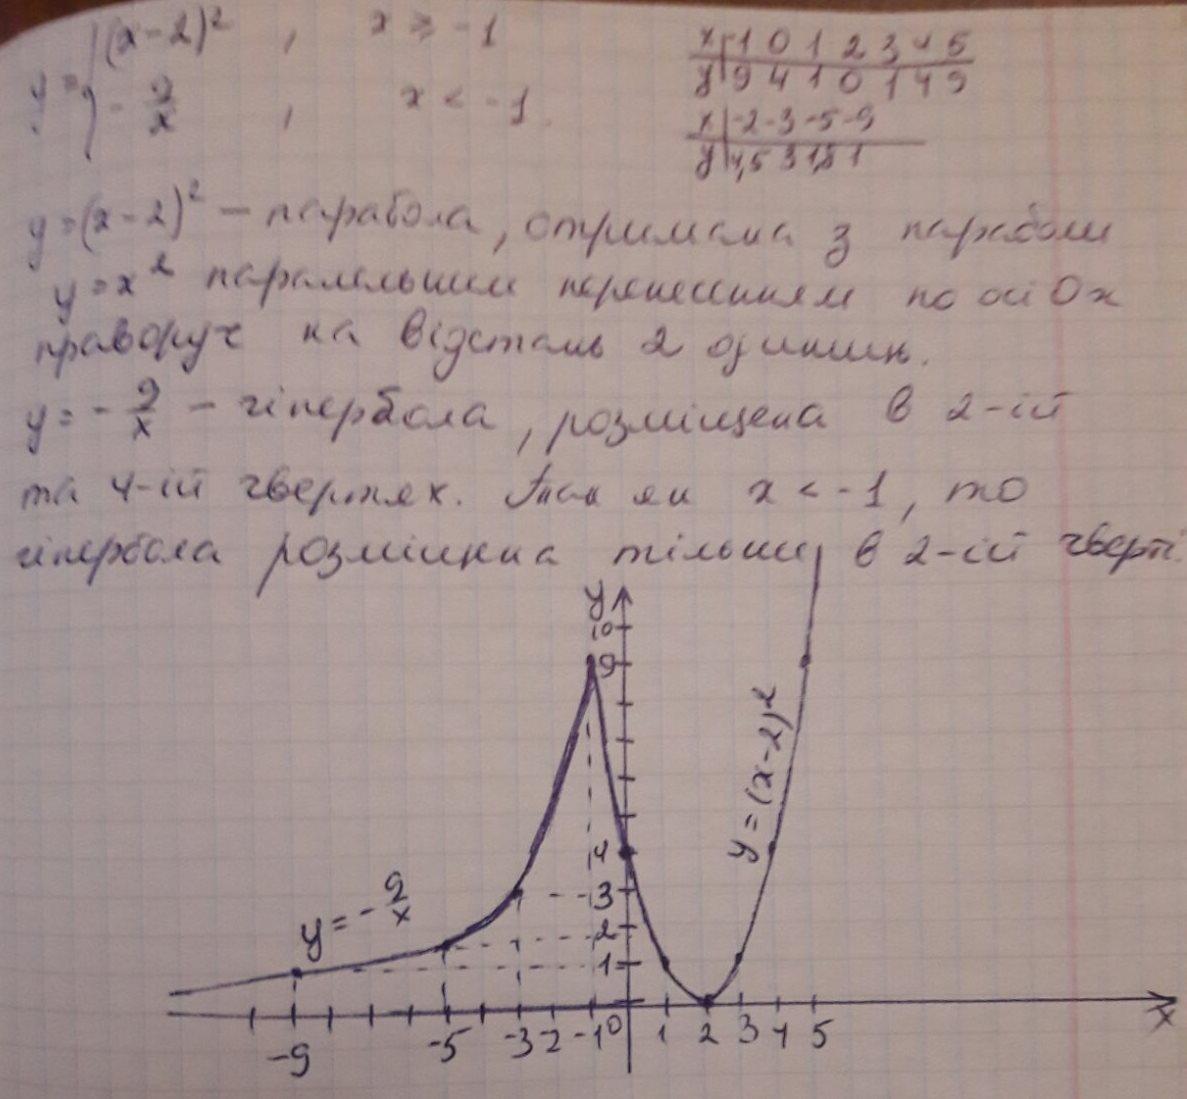 y = { (x-2)² , x ≥ -1
- 9/x , x < -1
x | -1 0 1 2 3 4 5
y | 9 4 1 0 1 4 9
x | -2 -3 -5 -9
y | 4,5 3 1,8 1
y=(x-2)² – парабола, отримана з параболи
y=x² паралельним перенесенням по осі Ox
праворуч на відстань 2 одиниць.
y= - 9/x – гіпербола, розміщена в 2-ій
та 4-ій чвертях. Так як x < -1, то
гіпербола розміщена тільки в 2-ій чверті.
y
10
9
4
3
2
1
y = - 9/x
y = (x-2)²
-9 -5 -3 -2 -1 0 1 2 3 4 5 x